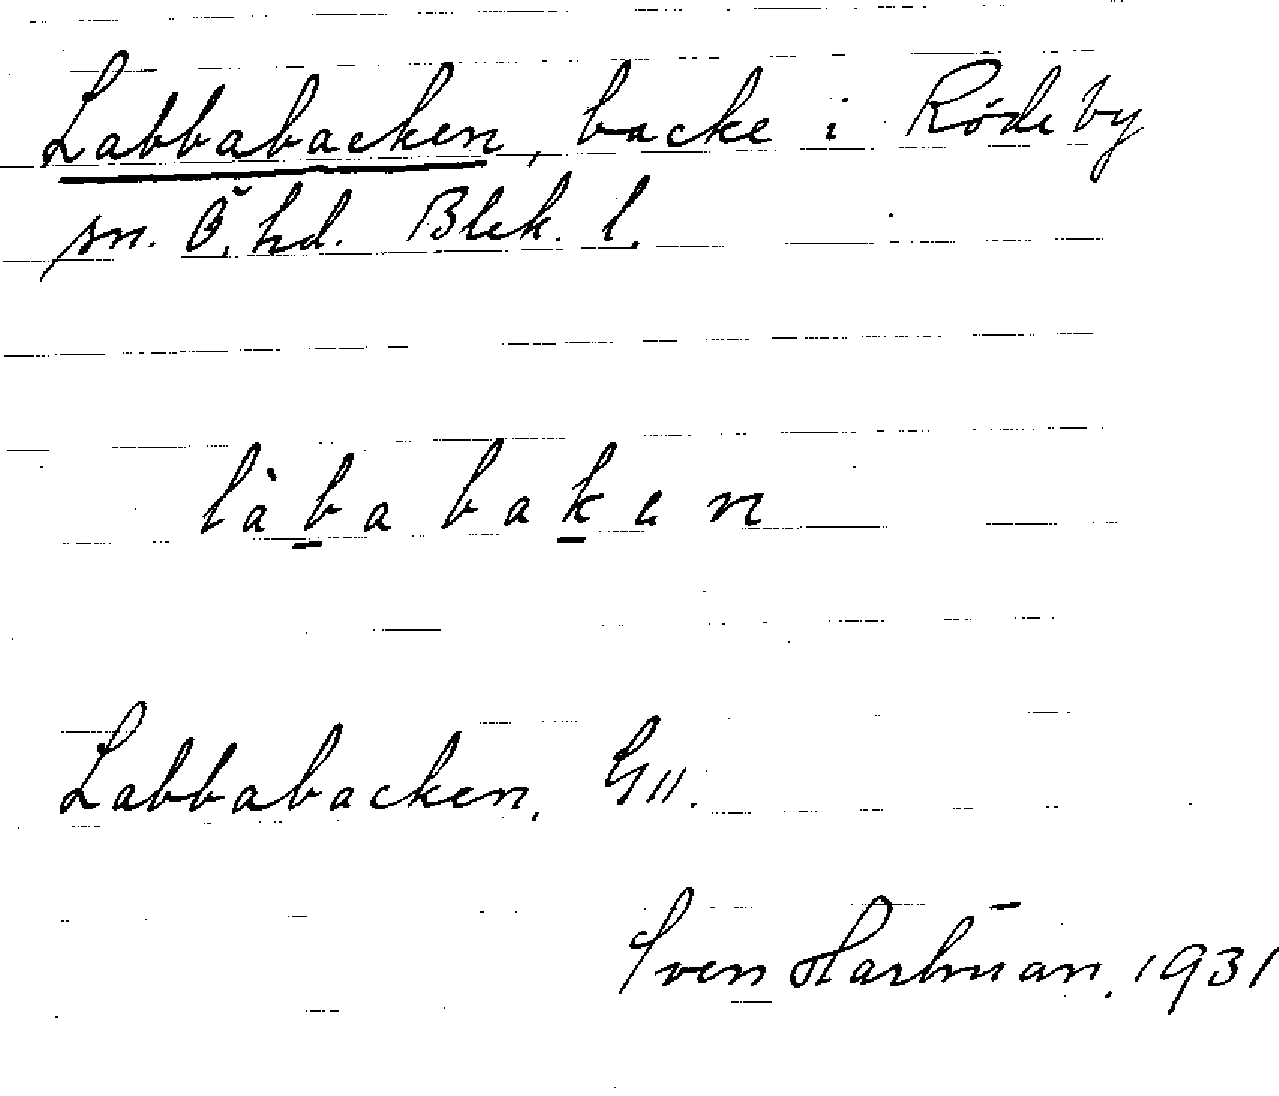 Labbabacken, backe i Rödeby
sn. Ö. hd. Blek. l.
làbabaken
Labbabacken. G11.
Sven Hartman. 1931